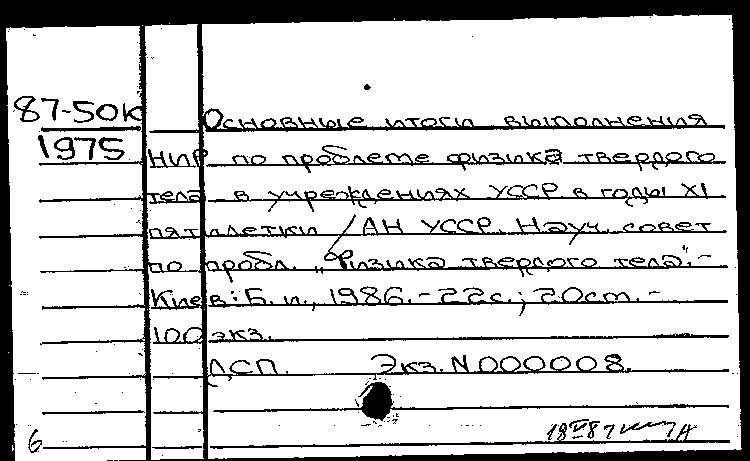 87-50К
1975
Основные итоги выполнения
НИР по проблеме физика твердого
тела в учреждениях УССР в годы XI
пятилетки / АН УССР. Науч. совет
по пробл. „Физика твердого тела".-
Киев: Б. и., 1986.-22с.; 20см.-
100экз.
ДСП. Экз. N000008.
6